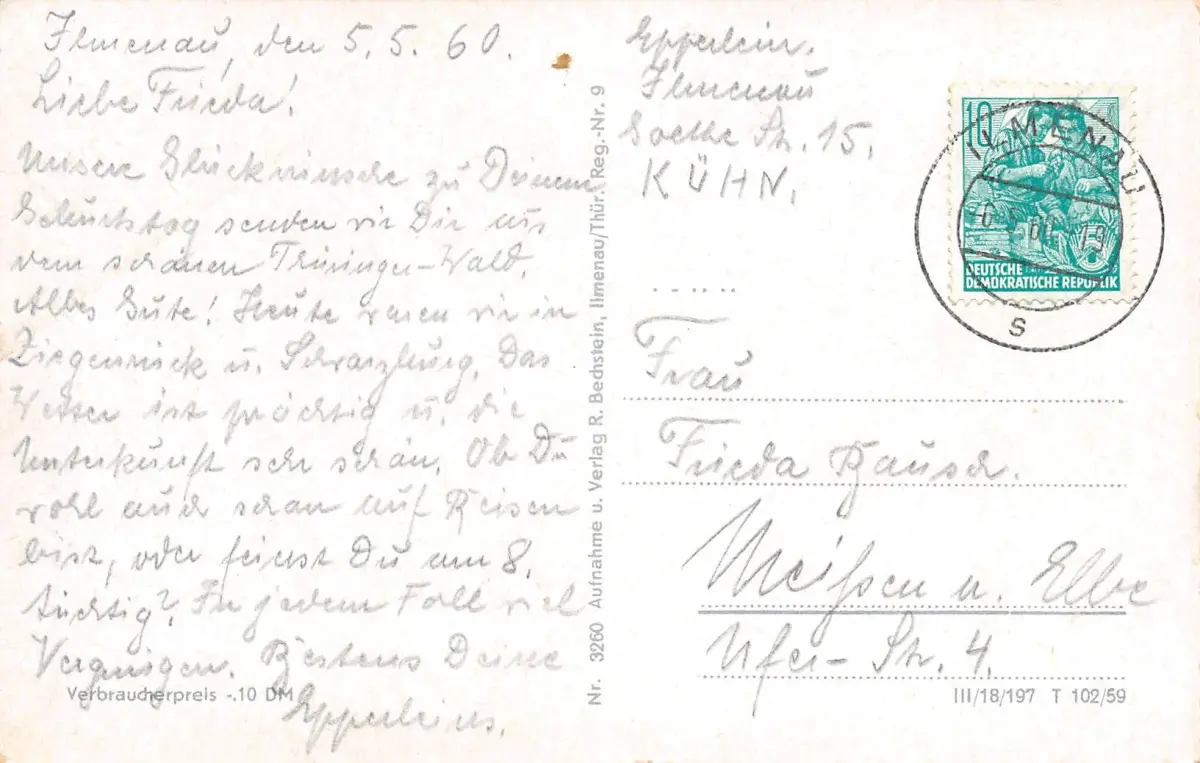 Ilmenau, den 5.5.60.
Liebe Frieda!
Unsere Glückwünsche zu Deinem
Geburtstag senden wir Dir aus
dem schönen Thüringer-Wald.
waren wir in
u. das
ist prächtig u. die
Unterkunft sehr schön. Ob Du
wohl auch schon auf Reisen
bist, oder feierst Du am 8.
In jedem Fall viel
Vergnügen. Bestens Deine
Epperleins.
Verbraucherpreis -.10 DM
Nr. 3260 Aufnahme u. Verlag R. Bechstein, Ilmenau/Thür. Reg.-Nr. 9
Epperlein.
Ilmenau
Goethe Str. 15.
KÜHN.
10
DEUTSCHE
DEMOKRATISCHE REPUBLIK
ILMENAU
S
Frau
Frieda Bausch.
Meißen a. Elbe
Ufer-Str. 4.
III/18/197 T 102/59